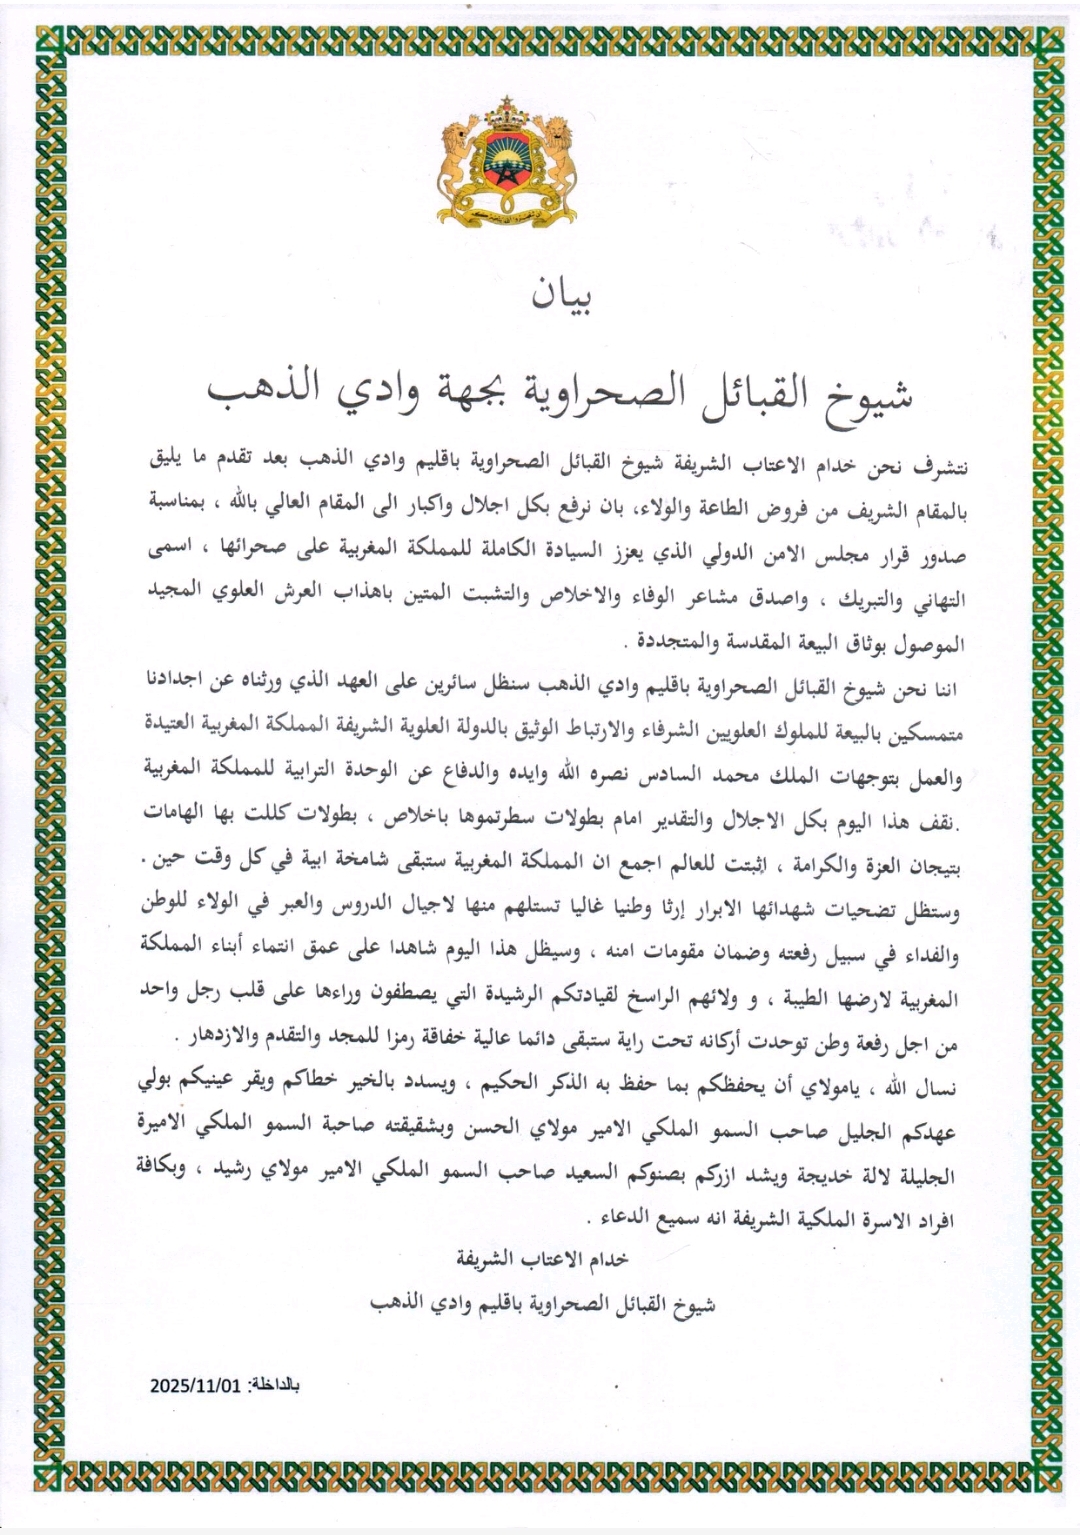 ان تنصروا الله ينصركم
بيان
شيوخ القبائل الصحراوية بجهة وادي الذهب
نتشرف نحن خدام الاعتاب الشريفة شيوخ القبائل الصحراوية باقليم وادي الذهب بعد تقدم ما يليق
بالمقام الشريف من فروض الطاعة والولاء، بان نرفع بكل اجلال واكبار الى المقام العالي بالله ، بمناسبة
صدور قرار مجلس الامن الدولي الذي يعزز السيادة الكاملة للمملكة المغربية على صحرائها ، اسمى
التهاني والتبريك ، واصدق مشاعر الوفاء والاخلاص والتشبت المتين باهذاب العرش العلوي المجيد
الموصول بوثاق البيعة المقدسة والمتجددة .
اننا نحن شيوخ القبائل الصحراوية باقليم وادي الذهب سنظل سائرين على العهد الذي ورثناه عن اجدادنا
متمسكين بالبيعة للملوك العلويين الشرفاء والارتباط الوثيق بالدولة العلوية الشريفة المملكة المغربية العتيدة
والعمل بتوجهات الملك محمد السادس نصره الله وايده والدفاع عن الوحدة الترابية للمملكة المغربية
.نقف هذا اليوم بكل الاجلال والتقدير امام بطولات سطرتموها باخلاص ، بطولات كللت بها الهامات
بتيجان العزة والكرامة ، اثبتت للعالم اجمع ان المملكة المغربية ستبقى شامخة ابية في كل وقت حين .
وستظل تضحيات شهدائها الابرار إرثا وطنيا غاليا تستلهم منها لاجيال الدروس والعبر في الولاء للوطن
والفداء في سبيل رفعته وضمان مقومات امنه ، وسيظل هذا اليوم شاهدا على عمق انتماء أبناء المملكة
المغربية لارضها الطيبة ، و ولائهم الراسخ لقيادتكم الرشيدة التي يصطفون وراءها على قلب رجل واحد
من اجل رفعة وطن توحدت أركانه تحت راية ستبقى دائما عالية خفاقة رمزا للمجد والتقدم والازدهار .
نسال الله ، يامولاي أن يحفظكم بما حفظ به الذكر الحكيم ، ويسدد بالخير خطاكم ويقر عينيكم بولي
عهدكم الجليل صاحب السمو الملكي الامير مولاي الحسن وبشقيقته صاحبة السمو الملكي الاميرة
الجليلة لالة خديجة ويشد ازركم بصنوكم السعيد صاحب السمو الملكي الامير مولاي رشيد ، وبكافة
افراد الاسرة الملكية الشريفة انه سميع الدعاء .
خدام الاعتاب الشريفة
شيوخ القبائل الصحراوية باقليم وادي الذهب
بالداخلة: 2025/11/01